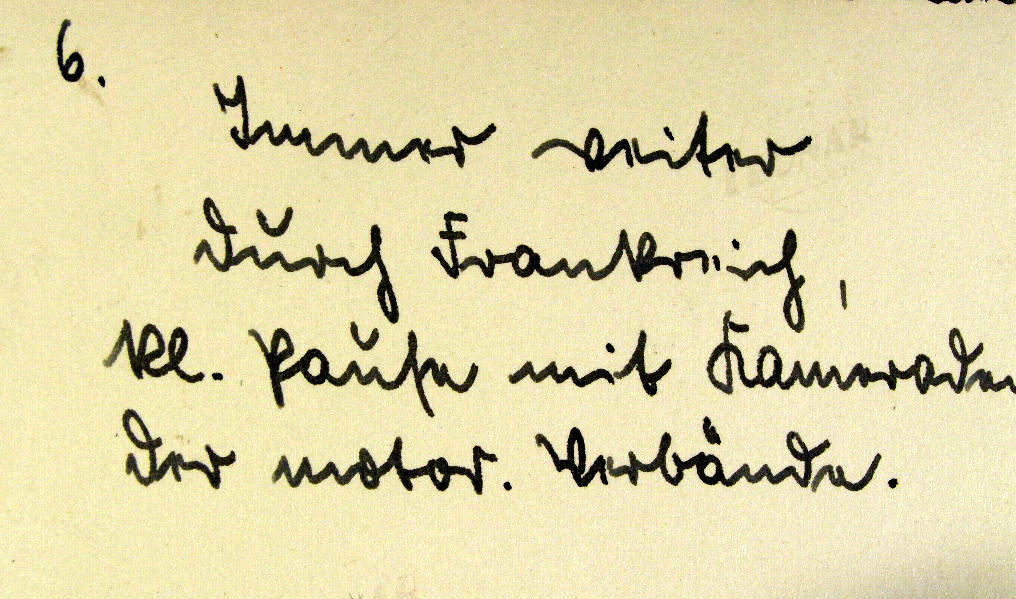 6.
Immer weiter
durch Frankreich,
kl. Pause mit Kameraden
der motor. Verbände.